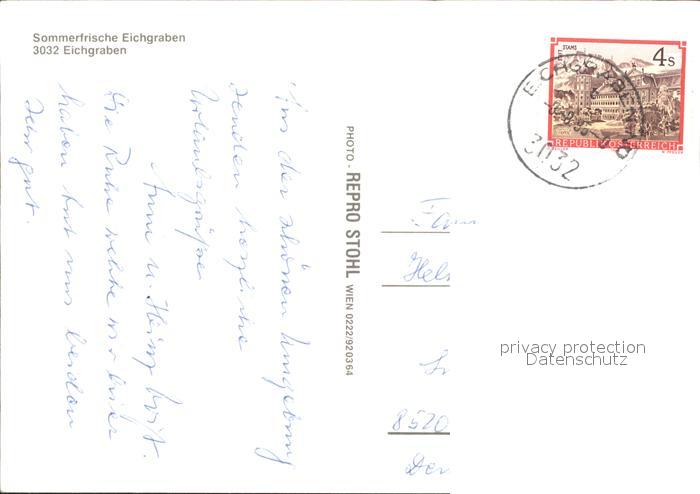 Sommerfrische Eichgraben
3032 Eichgraben
Aus der schönen Umgebung
senden herzliche
Urlaubsgrüße
Anni u. Heinz
Die Ruhe welche wir hier
haben tut uns beiden
sehr gut.
PHOTO - REPRO STOHL WIEN 0222/920364
STIFT STAMS
4 S
REPUBLIK ÖSTERREICH
EICHGRABEN
3032
Fam
Hels
8520
privacy protection
Datenschutz